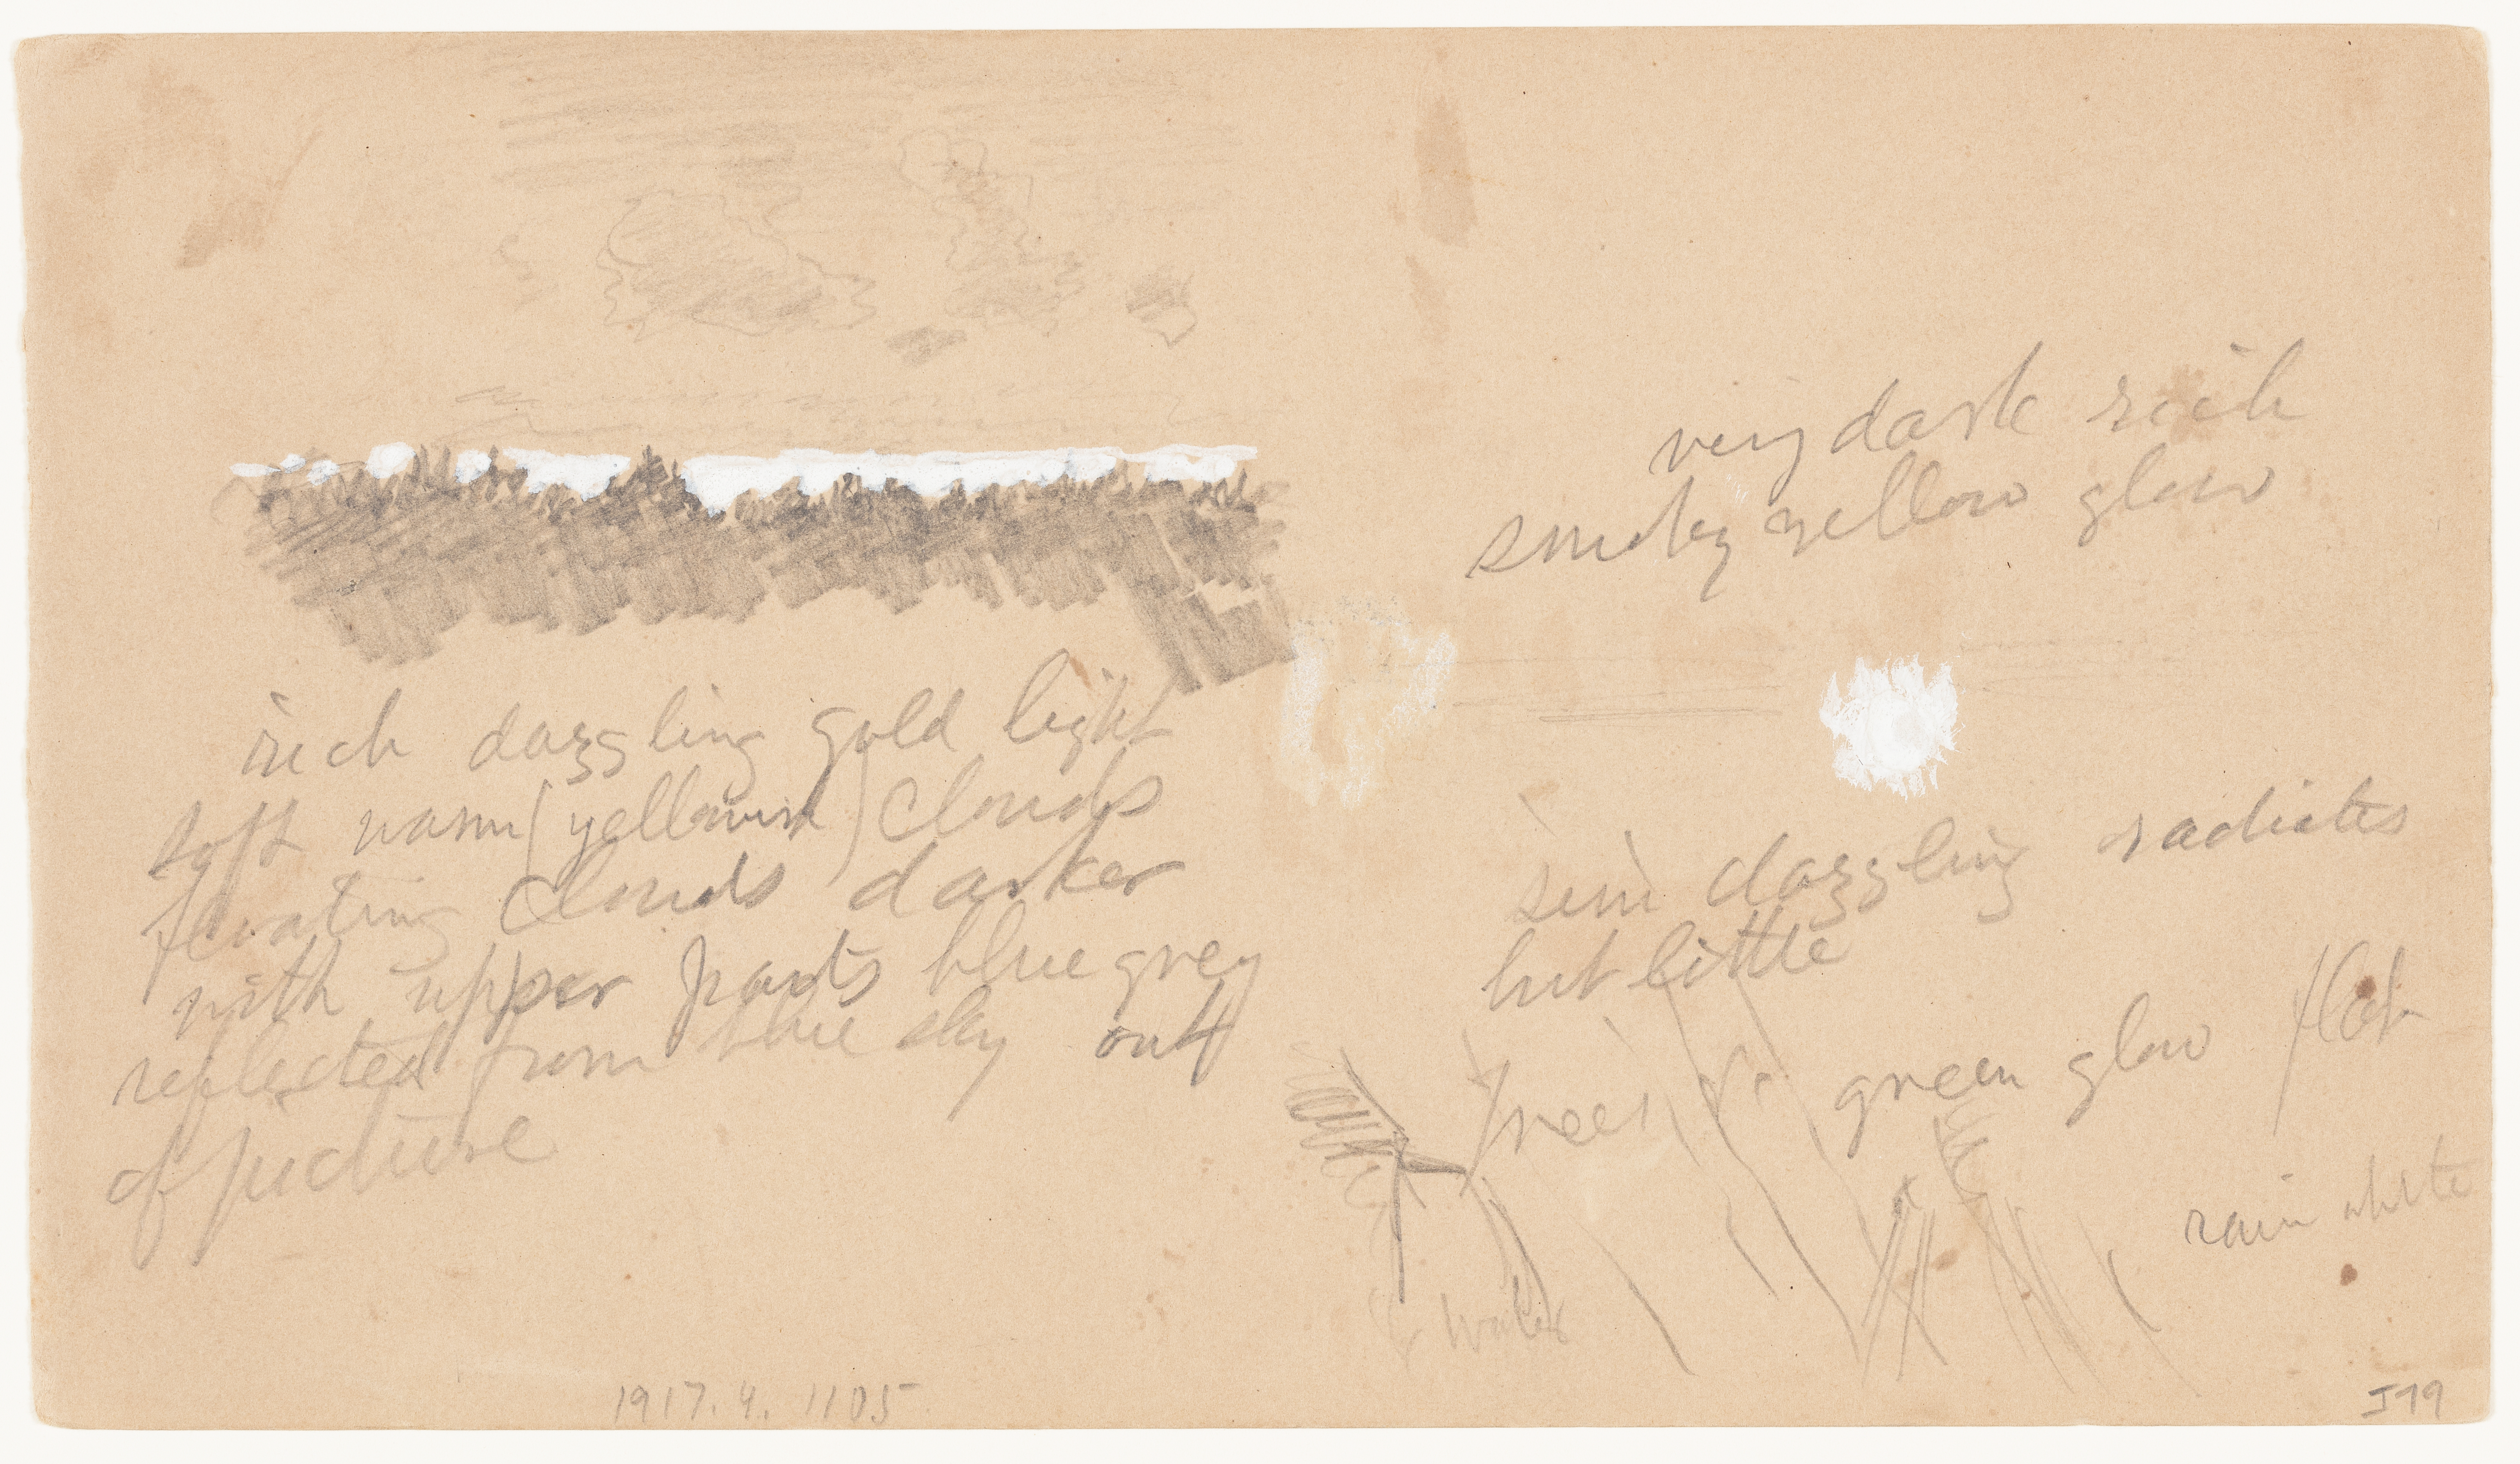 rich dazzling gold light
soft warm (yellowish) clouds
floating clouds darker
with upper parts blue grey
reflected from blue sky out
of picture
1917.4.1105
very dark rich
smoky yellow glow
semi dazzling radiates
but little
trees green glow flat
rain white
water
J79